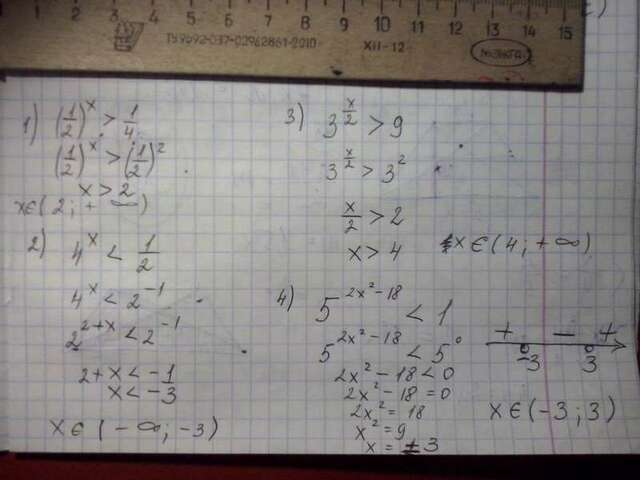 1 2 3 4 5 6 7 8 9 10 11 12 13 14 15
ТУ9692-037-02962861-2010 XII-12
1) (1/2)^x > 1/4
(1/2)^x > (1/2)^2
x > 2
x ∈ (2; + ∞)
2) 4^x < 1/2
4^x < 2^-1
2^2+x < 2^-1
2+x < -1
x < -3
x ∈ (-∞; -3)
3) 3^x/2 > 9
3^x/2 > 3^2
x/2 > 2
x > 4
x ∈ (4; +∞)
4) 5^2x²-18 < 1
5^2x²-18 < 5^0
2x²-18 < 0
2x²-18 = 0
2x² = 18
x² = 9
x = ±3
+ - +
-3 3
x ∈ (-3; 3)